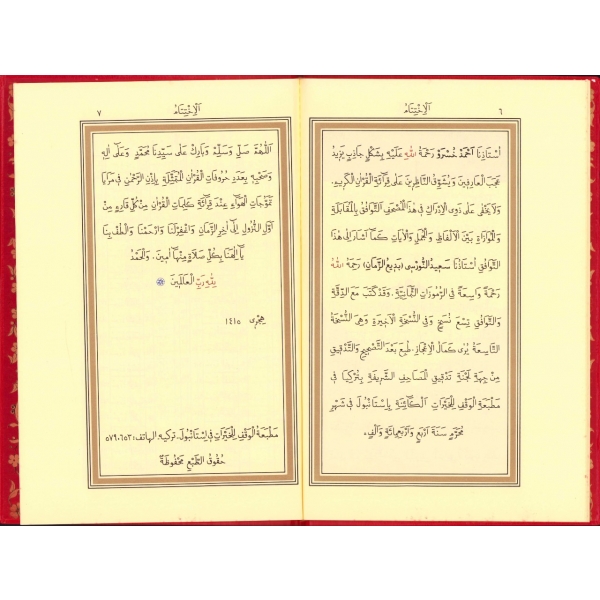 ٦
اَلْاِخْتِتَامُ
اُسْتَاذِنَا اَحْمَدْ خُسْرَوْ رَحْمَةُ اللّٰهِ عَلَيْهِ بِشَكْلٍ جَاذِبٍ يَزِيدُ
عَجَبَ الْعَارِفِينَ وَيُشَوِّقُ النَّاظِرِينَ عَلَى قِرَائَةِ الْقُرْاٰنِ الْكَرِيمِ.
وَلَا يَخْفَى عَلَى ذَوِى الْاِدْرَاكِ فِى هٰذَا الْمُصْحَفِ التَّوَافُقُ بِالْمُقَابَلَةِ
وَالْمُوَازَاةِ بَيْنَ الْاَلْفَاظِ وَالْجُمَلِ وَالْاٰيَاتِ كَمَا اَشَارَ اِلَى هٰذَا
التَّوَافُقِ اُسْتَاذُنَا سَعِيدُ النُّورْسِى (بَدِيعُ الزَّمَانِ) رَحْمَةُ اللّٰهِ
رَحْمَةً وَاسِعَةً فِى الرُّمُوزَاتِ الثَّمَانِيَةِ. وَقَدْ كَتَبَ مَعَ الدِّقَّةِ
وَالتَّوَافُقِ تِسْعَ نُسَخٍ وَفِى النُّسْخَةِ الْاَخِيرَةِ وَهِىَ النُّسْخَةُ
التَّاسِعَةُ يُرَى كَمَالُ الْاِعْجَازِ. طُبِعَ بَعْدَ التَّصْحِيحِ وَالتَّدْقِيقِ
مِنْ جِهَةِ لَجْنَةِ تَدْقِيقِ الْمَصَاحِفِ الشَّرِيفَةِ بِتُرْكِيَا فِى
مَطْبَعَةِ الْوَقْفِ لِلْخَيْرَاتِ الْكَائِنَةِ بِاِسْتَانْبُولَ فِى شَهْرِ
مُحَرَّمٍ سَنَةَ اَرْبَعٍ وَاَرْبَعِمِائَةٍ وَاَلْفٍ.
٧
اَلْاِخْتِتَامُ
اَللّٰهُمَّ صَلِّ وَسَلِّمْ وَبَارِكْ عَلَى سَيِّدِنَا مُحَمَّدٍ وَعَلَى اٰلِهِ
وَصَحْبِهِ بِعَدَدِ حُرُوفَاتِ الْقُرْاٰنِ الْمُتَمَثِّلَةِ بِاِذْنِ الرَّحْمٰنِ فِى مَرَايَا
تَمَوُّجَاتِ الْهَوَاءِ عِنْدَ قِرَائَةِ كَلِمَاتِ الْقُرْاٰنِ مِنْ كُلِّ قَارِءٍ مِنْ
اَوَّلِ النُّزُولِ اِلَى اٰخِرِ الزَّمَانِ وَاغْفِرْلَنَا وَارْحَمْنَا وَالْطُفْ بِنَا
يَا اِلٰهَنَا بِكُلِّ صَلَاةٍ مِنْهَا اٰمِينَ. وَالْحَمْدُ
لِلّٰهِ رَبِّ الْعَالَمِينَ
هِجْرِى ١٤١٥
مَطْبَعَةُ الْوَقْفِ لِلْخَيْرَاتِ فِى اِسْتَانْبُولَ. تركيه الهاتف: ٥٧٩٠٦٥٣
حُقُوقُ الطَّبْعِ مَحْفُوظَةٌ